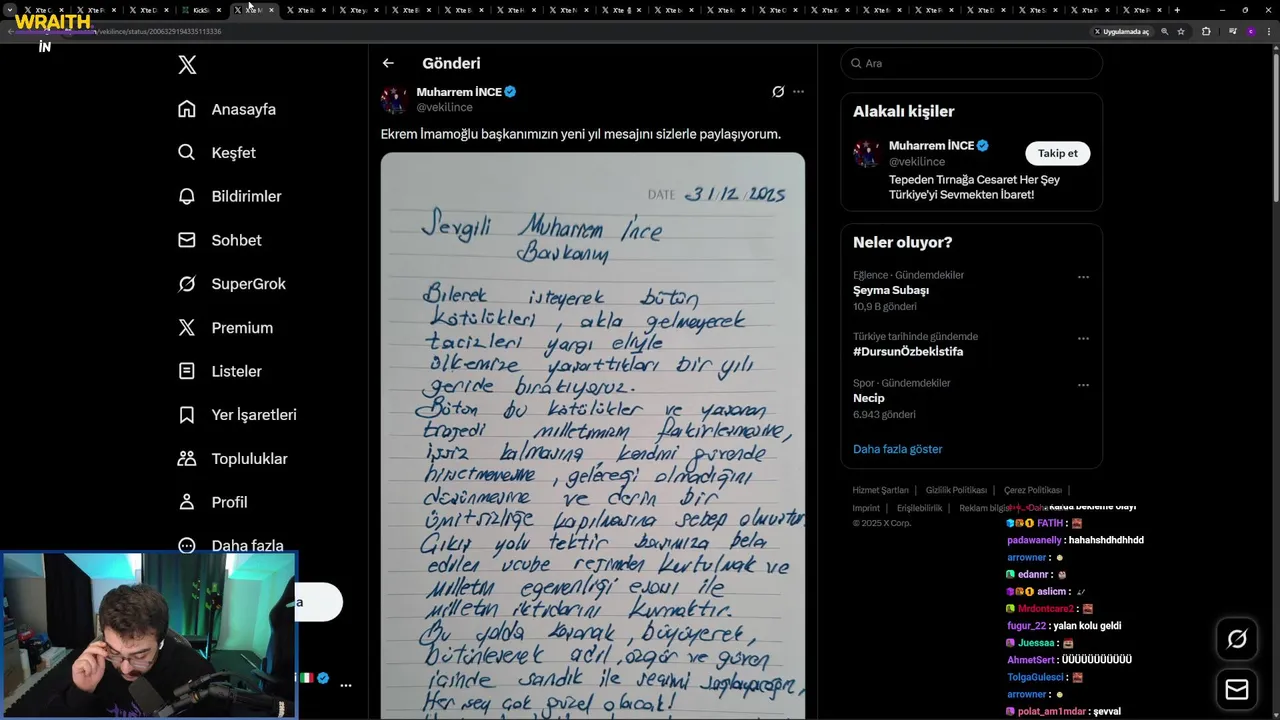 WRAITH
İN
/vekilince/status/2006329194335113336
Uygulamada aç
Anasayfa
Keşfet
Bildirimler
Sohbet
SuperGrok
Premium
Listeler
Yer İşaretleri
Topluluklar
Profil
Daha fazla
Gönderi
Muharrem İNCE
@vekilince
Ekrem İmamoğlu başkanımızın yeni yıl mesajını sizlerle paylaşıyorum.
DATE 31/12/2025
Sevgili Muharrem İnce
Başkanım
Bilerek isteyerek bütün
kötülükleri, akla gelmeyecek
tacizleri yargı eliyle
ülkemize yaşattıkları bir yılı
geride bırakıyoruz.
Bütün bu kötülükler ve yaşanan
trajedi milletimizin fakirleşmesine,
işsiz kalmasına, kendini güvende
hissetmemesine, geleceği olmadığını
düşünmesine ve derin bir
ümitsizliğe kapılmasına sebep olmuştur.
Çıkış yolu tektir başımıza bela
edilen ucube rejimden kurtulmak ve
milletin egemenliği esası ile
milletin iktidarını kurmaktır.
Bu yolda kalarak, büyüyerek,
bütünleşerek adil, özgür ve güven
içinde sandık ile seçimi sağlayacağız,
Her şey çok güzel olacak!
Ara
Alakalı kişiler
Muharrem İNCE
@vekilince
Takip et
Tepeden Tırnağa Cesaret Her Şey
Türkiye'yi Sevmekten İbaret!
Neler oluyor?
Eğlence · Gündemdekiler
Şeyma Subaşı
10,9 B gönderi
Türkiye tarihinde gündemde
#DursunÖzbekİstifa
Spor · Gündemdekiler
Necip
6.943 gönderi
Daha fazla göster
Hizmet Şartları | Gizlilik Politikası | Çerez Politikası |
Imprint | Erişilebilirlik | Reklam bilgisi
© 2025 X Corp.
karda bekleme olayı
FATİH :
padawanelly : hahahshdhdhhdd
arrowner :
edannr :
aslicm :
Mrdontcare2 :
fugur_22 : yalan kolu geldi
Juessaa :
AhmetSert : ÜÜÜÜÜÜÜÜÜÜÜ
TolgaGulesci :
arrowner :
polat_am1mdar : şevval